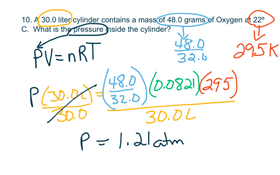 10. A 30.0 liter cylinder contains a mass of 48.0 grams of Oxygen at 22º
C. What is the pressure inside the cylinder?
48.0
32.0
295K
PV=nRT
P (30.0L) = (48.0/32.0) (0.0821) (295)
30.0 30.0L
P = 1.21 atm